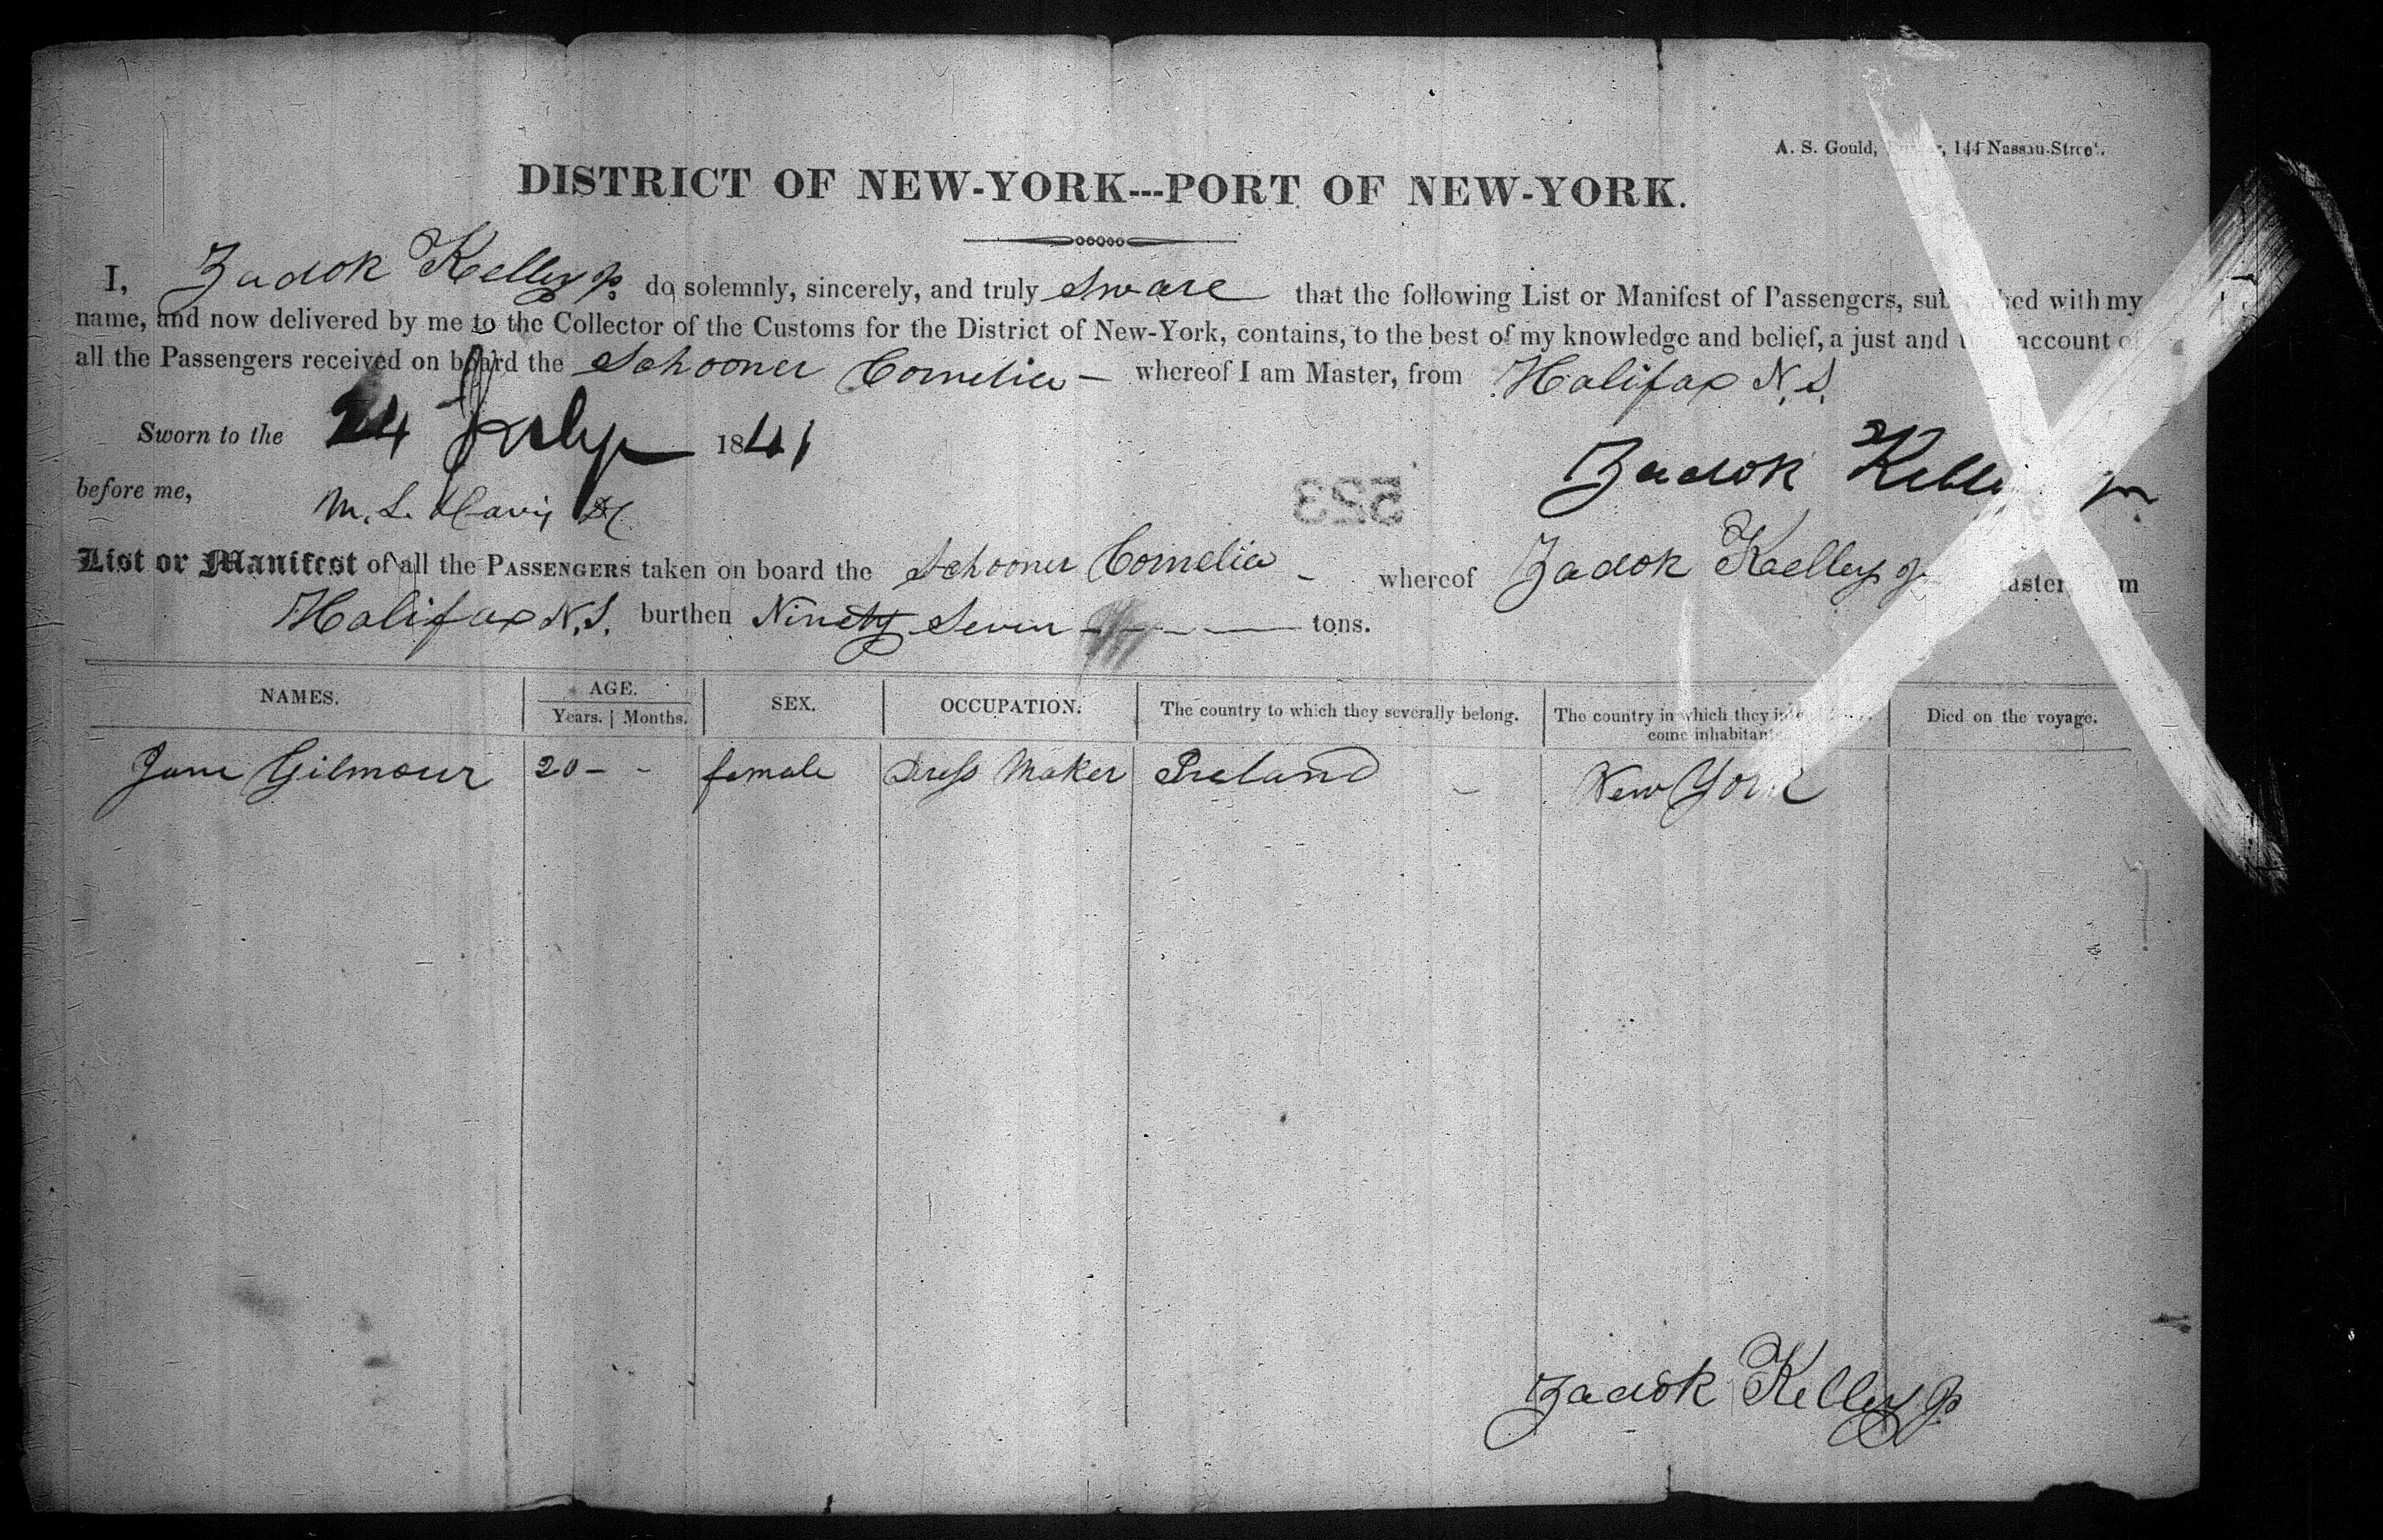 A. S. Gould, 144 Nassau-Street.
DISTRICT OF NEW-YORK---PORT OF NEW-YORK.
I, Zadok Kelley Jr. do solemnly, sincerely, and truly Sware that the following List or Manifest of Passengers, subscribed with my
name, and now delivered by me to the Collector of the Customs for the District of New-York, contains, to the best of my knowledge and belief, a just and account of
all the Passengers received on board the Schooner Cornelia — whereof I am Master, from Halifax N.S.
Sworn to the 24 July 1841
Zadok Kelley Jr
before me,
M. L. Davis
523
List or Manifest of all the PASSENGERS taken on board the Schooner Cornelia - whereof Zadok Kelley Jr Master, from
Halifax N.S. burthen Ninety Seven tons.
NAMES. AGE. SEX. OCCUPATION. The country to which they severally belong. The country in which they come inhabitants Died on the voyage.
Years. Months.
Jane Gilmour 20 - - female Dress Maker Ireland New York
Zadok Kelley Jr